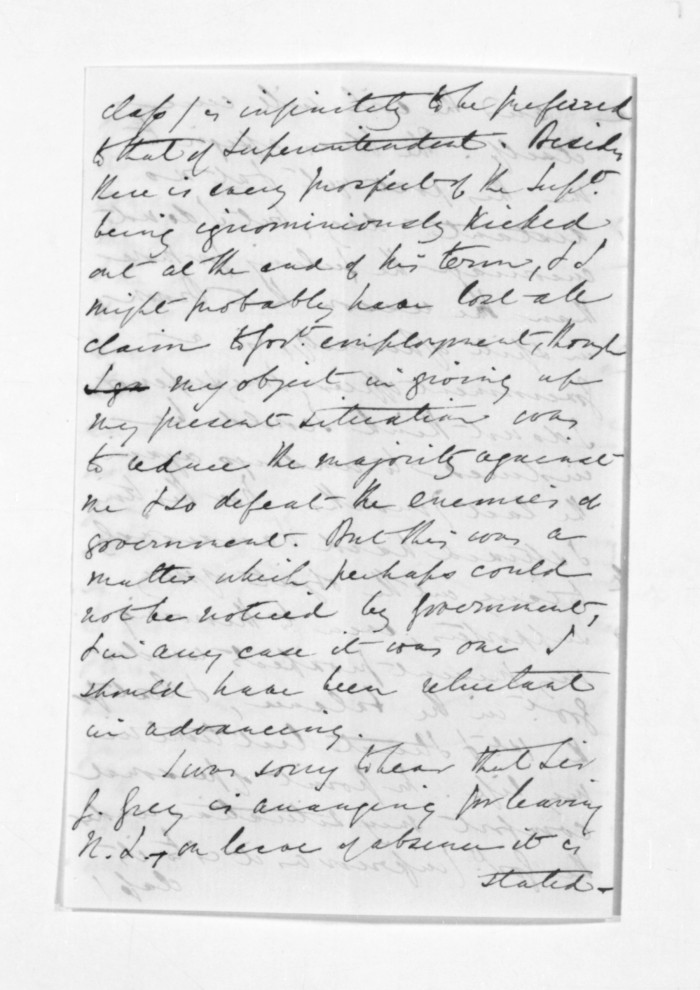 class) is infinitely to be preferred
to that of Superintendent. Besides
there is every prospect of the Supt.
being ignominiously kicked
out at the end of his term, & I
might probably have lost all
claim to Govt. employment, though
my object in giving up
my present situation was
to reduce the majority against
me & so defeat the enemies of
government. But this was a
matter which perhaps could
not be noticed by Government,
& in any case it was one I
should have been reluctant
in advancing.
I was sorry to hear that Sir
G. Grey is arranging for leaving
N.Z., on leave of absence it is
stated -